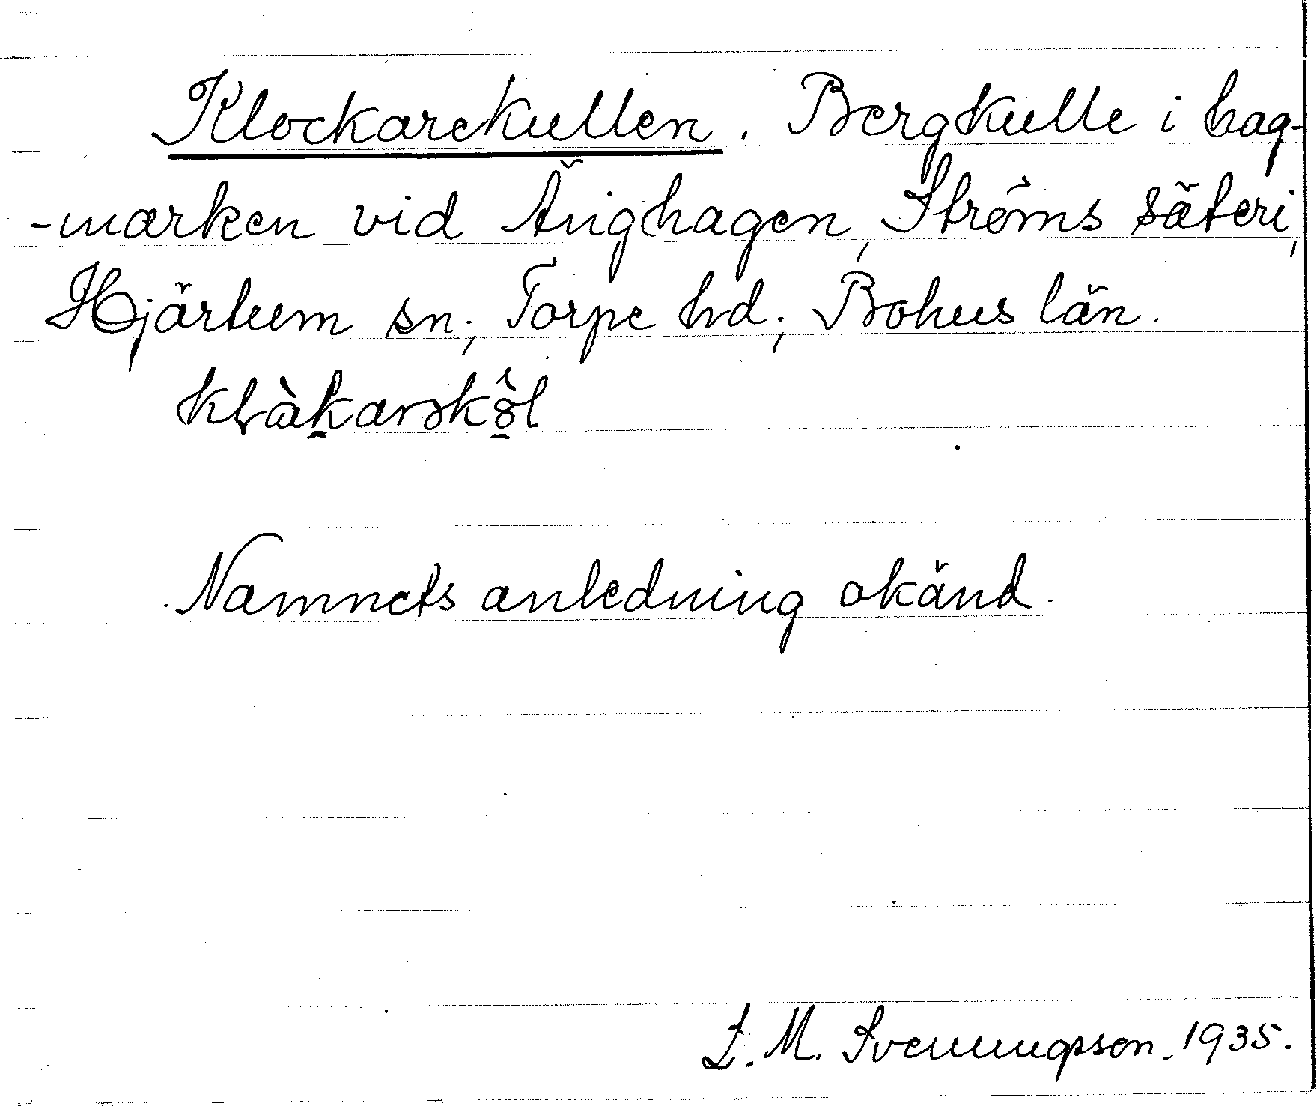 Klockarekullen. Bergkulle i hag-
-marken vid Änghagen, Ströms säteri,
Hjärtum sn; Torpe hd; Bohus län.
klàkarskö̀l
Namnets anledning okänd.
L. M. Svenungsson. 1935.